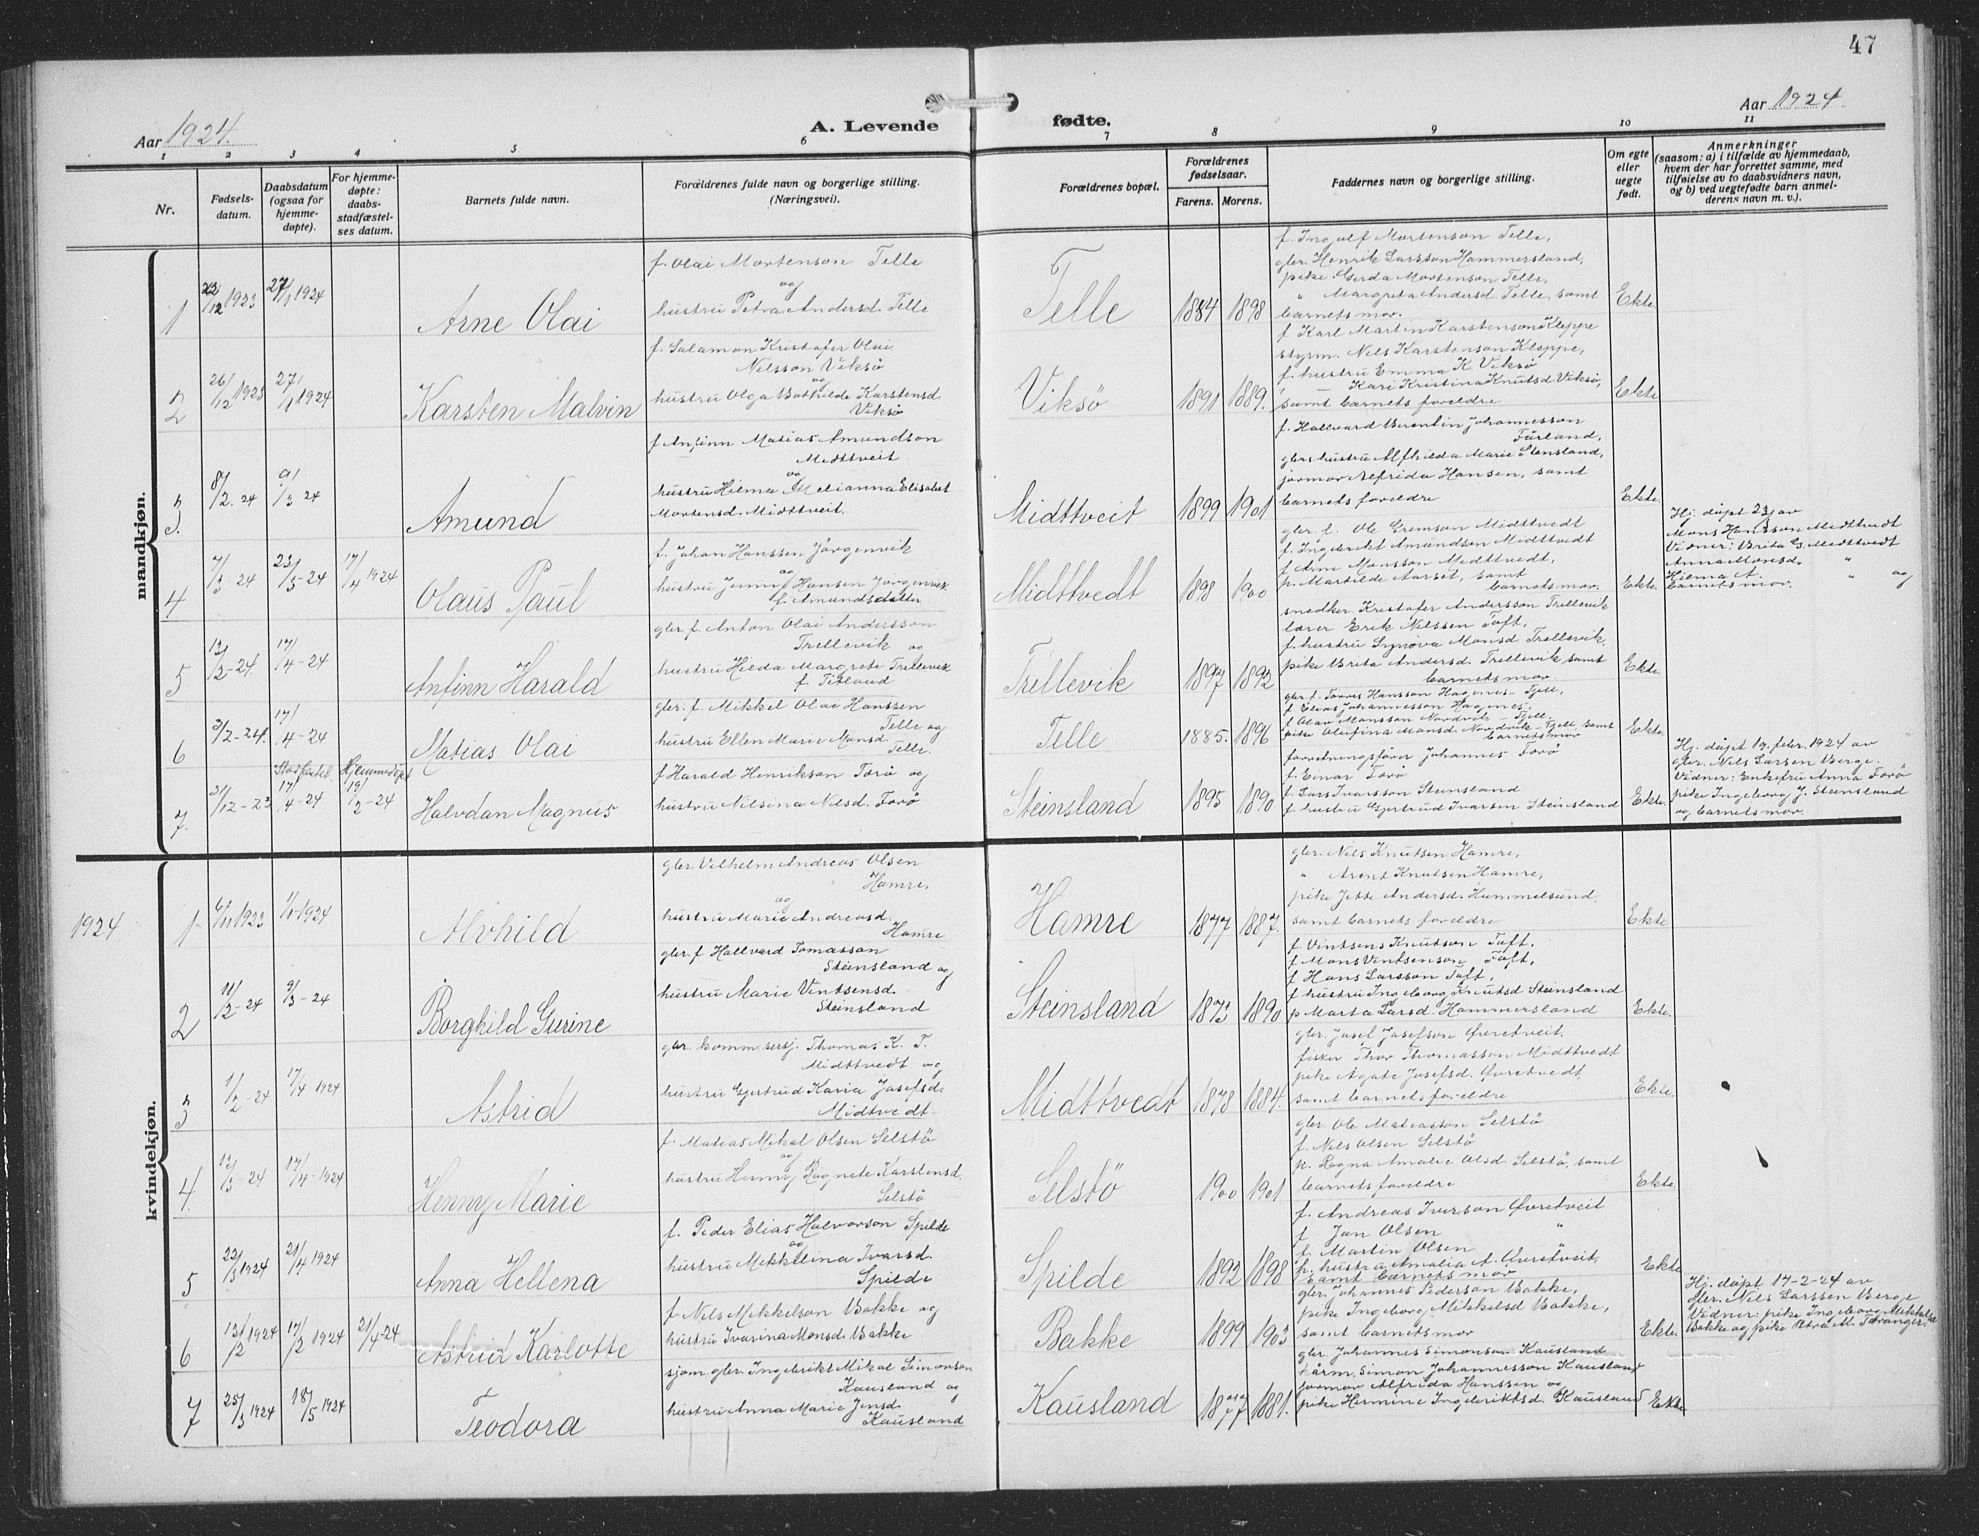 47
Aar 1924.
A. Levende fødte.
Aar 1924.
1 2 3 4 5 6 7 8 9 10 11
Nr.
Fødsels-datum.
Daabsdatum (ogsaa for hjemme-døpte).
For hjemme-døpte: daabs-stadfæstel-ses datum.
Barnets fulde navn.
Forældrenes fulde navn og borgerlige stilling. (Næringsvei).
Forældrenes bopæl.
Forældrenes fødselsaar.
Farens. Morens.
Faddernes navn og borgerlige stilling.
Om egte eller uegte født.
Anmerkninger
(saasom: a) i tilfælde av hjemmedaab, hvem der har forrettet samme, med tilføielse av to daabsvidners navn, og b) ved uegtefødte barn anmel-derens navn m. v.).
mandkjøn.
1
22/12 1923
27/1 1924
Arne Olai
f. Olai Mortenson Telle
og
hustru Petra Andersd. Telle
Telle
1884 1898
f. Ingolf Mortenson Telle,
gbr. Henrik Larsson Hammersland,
pike Gerda Mortenson Telle,
" Margreta Andersd. Telle, samt
barnets mor.
Ekte
2
26/12 1923
27/1 1924
Karsten Malvin
f. Salamon Kristofer Olai
Nilsson Viksö
og
hustru Olga Bothilde Karstensd.
Viksö
Viksö
1891 1889.
f Karl Martin Karstenson Kleppe
styrm. Nils Karstenson Kleppe,
f. hustru Emma K. Viksö
— Kari Kristina Knutsd. Viksö,
samt barnets foreldre
Ekte
3.
8/2. 24
9/3 24
Amund
f. Anfinn Matias Amundson
Midttveit
og
hustru Hilma Melianna Elisabet
Mortensd. Midttveit.
Midttveit
1899 1901
f. Hallvard Berentin Johannesson
Färland,
gbrs hustru Alfhilda Marie Stensland,
jormor Alfrida Hansen, samt
barnets foreldre
Ekte
4
7/3-24
23/3-24
17/4 1924
Olaus Paul
f. Johan Hanssen Jörgenvik
og
hustru Jenny Hansen Jörgenvik
f. Amundsdatter
Midttvedt
1898 1900
gbr. f. Ole Gremson Midttvedt
f. Ingebrikt Amundsen Midttvedt
f. Arne Monsson Midttvedt,
p. Martilde Aarset, samt
barnets mor.
Ekte.
Hj. döpt 23/3 av
Mons Hansson Midttvedt
Vidner: Brita G. Midttvedt
Anna Monsd. "
Hilma A. " og
barnets mor.
5
13/2-24.
17/4-24
Anfinn Harald
gbr. f. Anton Olai Andersson
Trellevik og
hustru Hilda Margrete Trellevik
f. Tisland
Trellevik
1897 1892
snedker Kristofer Andersson Trellevik
lærer Erik Nilssen Toft,
f. hustru Synöva Monsd. Trellevik,
pike Brita Andersd. Trellevik samt
barnets mor.
Ekte.
6
3/2-24.
17/4-24
Matias Olai
gbr. f. Mikkel Olai Hanssen
Telle og
hustru Ellen Marie Monsd.
Telle.
Telle
1885. 1896
gbr. f. Torvis Hansson Hagenes Fjell,
f Elias Johannesson Hagenes,
f Olav Monsson Nordvik - Fjell.
pike Olufina Monsd. Nordvik - Fjell samt
barnets mor
Ekte.
7.
31/12-23
Stadfestel.
17/4-24
Hjemmedöpt
19/2-24
Halvdan Magnus
f Harald Henrikson Torö og
hustru Nilsina Nilsd. Torö
Steinsland
1895 1890
forretningsförer Johannes Torö
f. Einar Torö
f Lars Ivarsson Stensland
f. hustru Gjertrud Ivarsen Steinsland
Ekte.
Hj. döpt 19. febr. 1924 av
gbr. Nils Larsen Berge.
Vidner: Enkefru Anna Torö
pike Ingeborg J. Steinsland
og barnets mor.
1924
kvindekjøn.
1
6/11 1923
1/1 1924
Alvhild
gbr. Vilhelm Andreas Olsen
Hamre,
og
hustru Marie Andreasd.
Hamre
Hamre
1877 1887.
gbr. Nils Knutsen Hamre,
" Arent Knutsen Hamre,
pike Jette Andersd. Hummelsund,
samt barnets foreldre
Ekte
2
11/2-24
9/3-24
Borghild Gurine
gbr. f Hallvard Tomasson
Steinsland og
hustru Marie Vintsensd.
Steinsland
Steinsland
1873 1890
f. Vintsens Knutson Toft,
f Mons Vintsenson Toft,
f Hans Larsson Toft,
f hustru Ingeborg Knutsd Steinsland
p Marta Larsd. Hammersland
Ekte.
3
1/2-24
17/4 1924
Astrid
gbr. komm.sersj. Thomas K. T.
Midttvedt og
hustru Gjertrud Karia Josefsd.
Midtvedt.
Midttvedt
1878 1884.
gbr. Josef Josefson Övretveit.
fisker Thor Thomasson Midttvedt
pike Agate Josefsd. Övretvedt
samt barnets foreldre
Ekte.
4.
12/3-24
17/4-1924
Henny Marie
f. Matias Mikal Olsen Selstö
og
hustru Henny Rognete Karstensd.
Selstö
Selstö
1900 1901
gbr. Ole Matiasson Selstö
f. Nils Olsen Selstö
p. Ragna Amalie Olsd. Selstö, samt
barnets foreldre
Ekte.
5
22/3 1924
21/4 1924
Anna Hellena
f. Peder Elias Halvorson Spilde
og
hustru Mekkelina Ivarsd.
Spilde
Spilde
1892 1898
f. Andreas Iverson Övretveit
f Jan Olsen "
f. Martin Olsen
f. hustru Amalia A. Övretveit,
samt barnets mor
Ekte
6
13/2 1924
17/2 1924
21/4-24
Astrid Karlotte
f. Nils Mikkelson Bakke og
hustru Ivarina Monsd Bakke
Bakke
1899 1903
gbr. Johannes Pederson Bakke,
pike Ingeborg Mikkelsd Bakke,
samt barnets mor
Ekte.
Hj. döpt 17-2-24 av
gbr. Nils Larssen Berge
Vidner: pike Ingeborg Mikkelsd
Bakke og pike Petra M. Toranger
7
25/3 1924
18/5 1924
Teodora
sjom. gbr. Ingebrikt Mikal Simonson
Kausland og
hustru Anna Marie Jensd.
Kausland
Kausland
1877 1881.
gbr. Johannes Simonson Kausland
Simon Johannesson Kausland
jormor Alfrida Hanssen og
pike Hermine Ingebriktsd. Kausland
Ekte